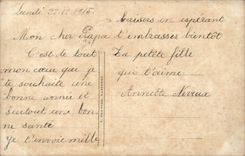 Lundi 27.12.1915
Mon cher Papa
C'est de tout
mon cœur que je
te souhaite une
bonne année et
surtout une bon
ne santé
je t'envoie mille
baisers en espérant
t'embrasser bientôt
La petite fille
qui t'aime
Annette